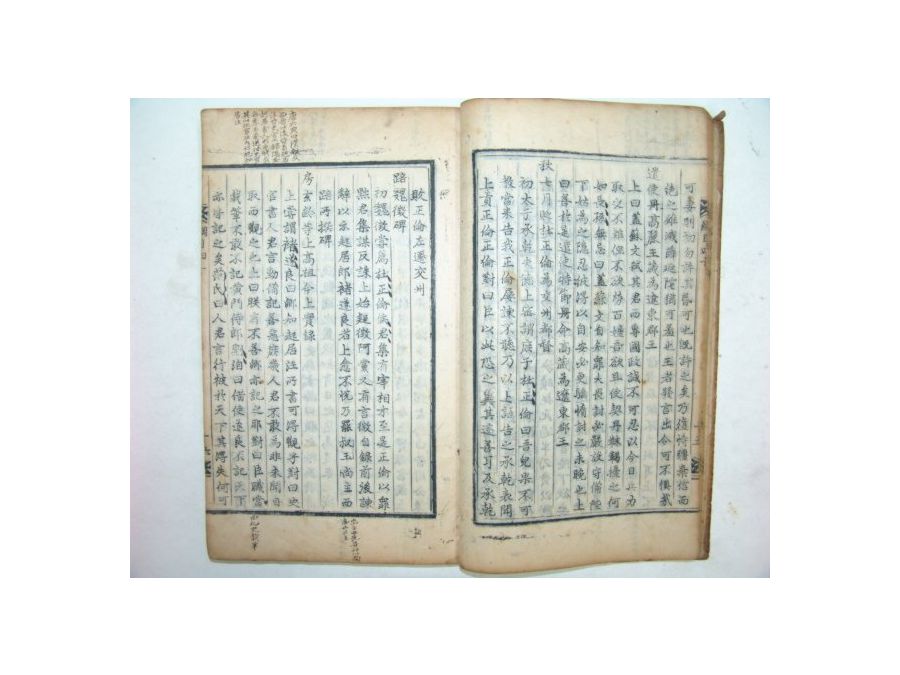 可妻則勿許其昏可也既許之矣乃復恃疆棄信而
絶之雖滅薛延陀猶可羞也王者發言出令可不愼哉
遣使冊高麗王藏為遼東郡王
上曰蓋蘇文弑其君而專國政誠不可忍以今日兵力
取之不難但不欲勞百姓吾欲且使契丹靺鞨擾之何
如長孫無忌曰蓋蘇文自知罪大畏討必嚴設守備陛
下姑為之隱忍彼得以自安必更驕惰討之未晩也上
曰善於是遣使持節冊命高藏為遼東郡王
秋七月貶杜正倫為交州都督
初太子承乾失德上密謂庶子杜正倫曰吾兒果不可
教當來告我正倫屢諫不聽乃以上語告之承乾表聞
上責正倫正倫對曰臣以此恐之冀其遷善耳及承乾
敗正倫左遷交州
踣魏徵碑
初魏徵嘗薦杜正倫侯君集有宰相才至是正倫以罪
黜君集謀反誅上始疑徵阿黨又有言徵自錄前後諫
辭以示起居郎褚遂良者上愈不悅乃罷叔玉尚主而
踣所撰碑
房玄齡等上高祖今上實錄
上嘗謂諸遂良曰卿知起居注所書可得觀乎對曰史
官書人君言動備記善惡庶幾人君不敢為非未聞自
取而觀之也上曰朕有不善卿亦記之耶對曰臣職當
載筆不敢不記黃門侍郎劉洎曰借使遂良不記天下
亦皆記之矣
氏曰人君言行被於天下其得失何可